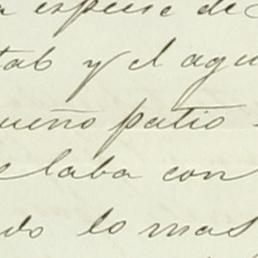 especie de
tab y el agu
queño patio
elaba con
do lo mas